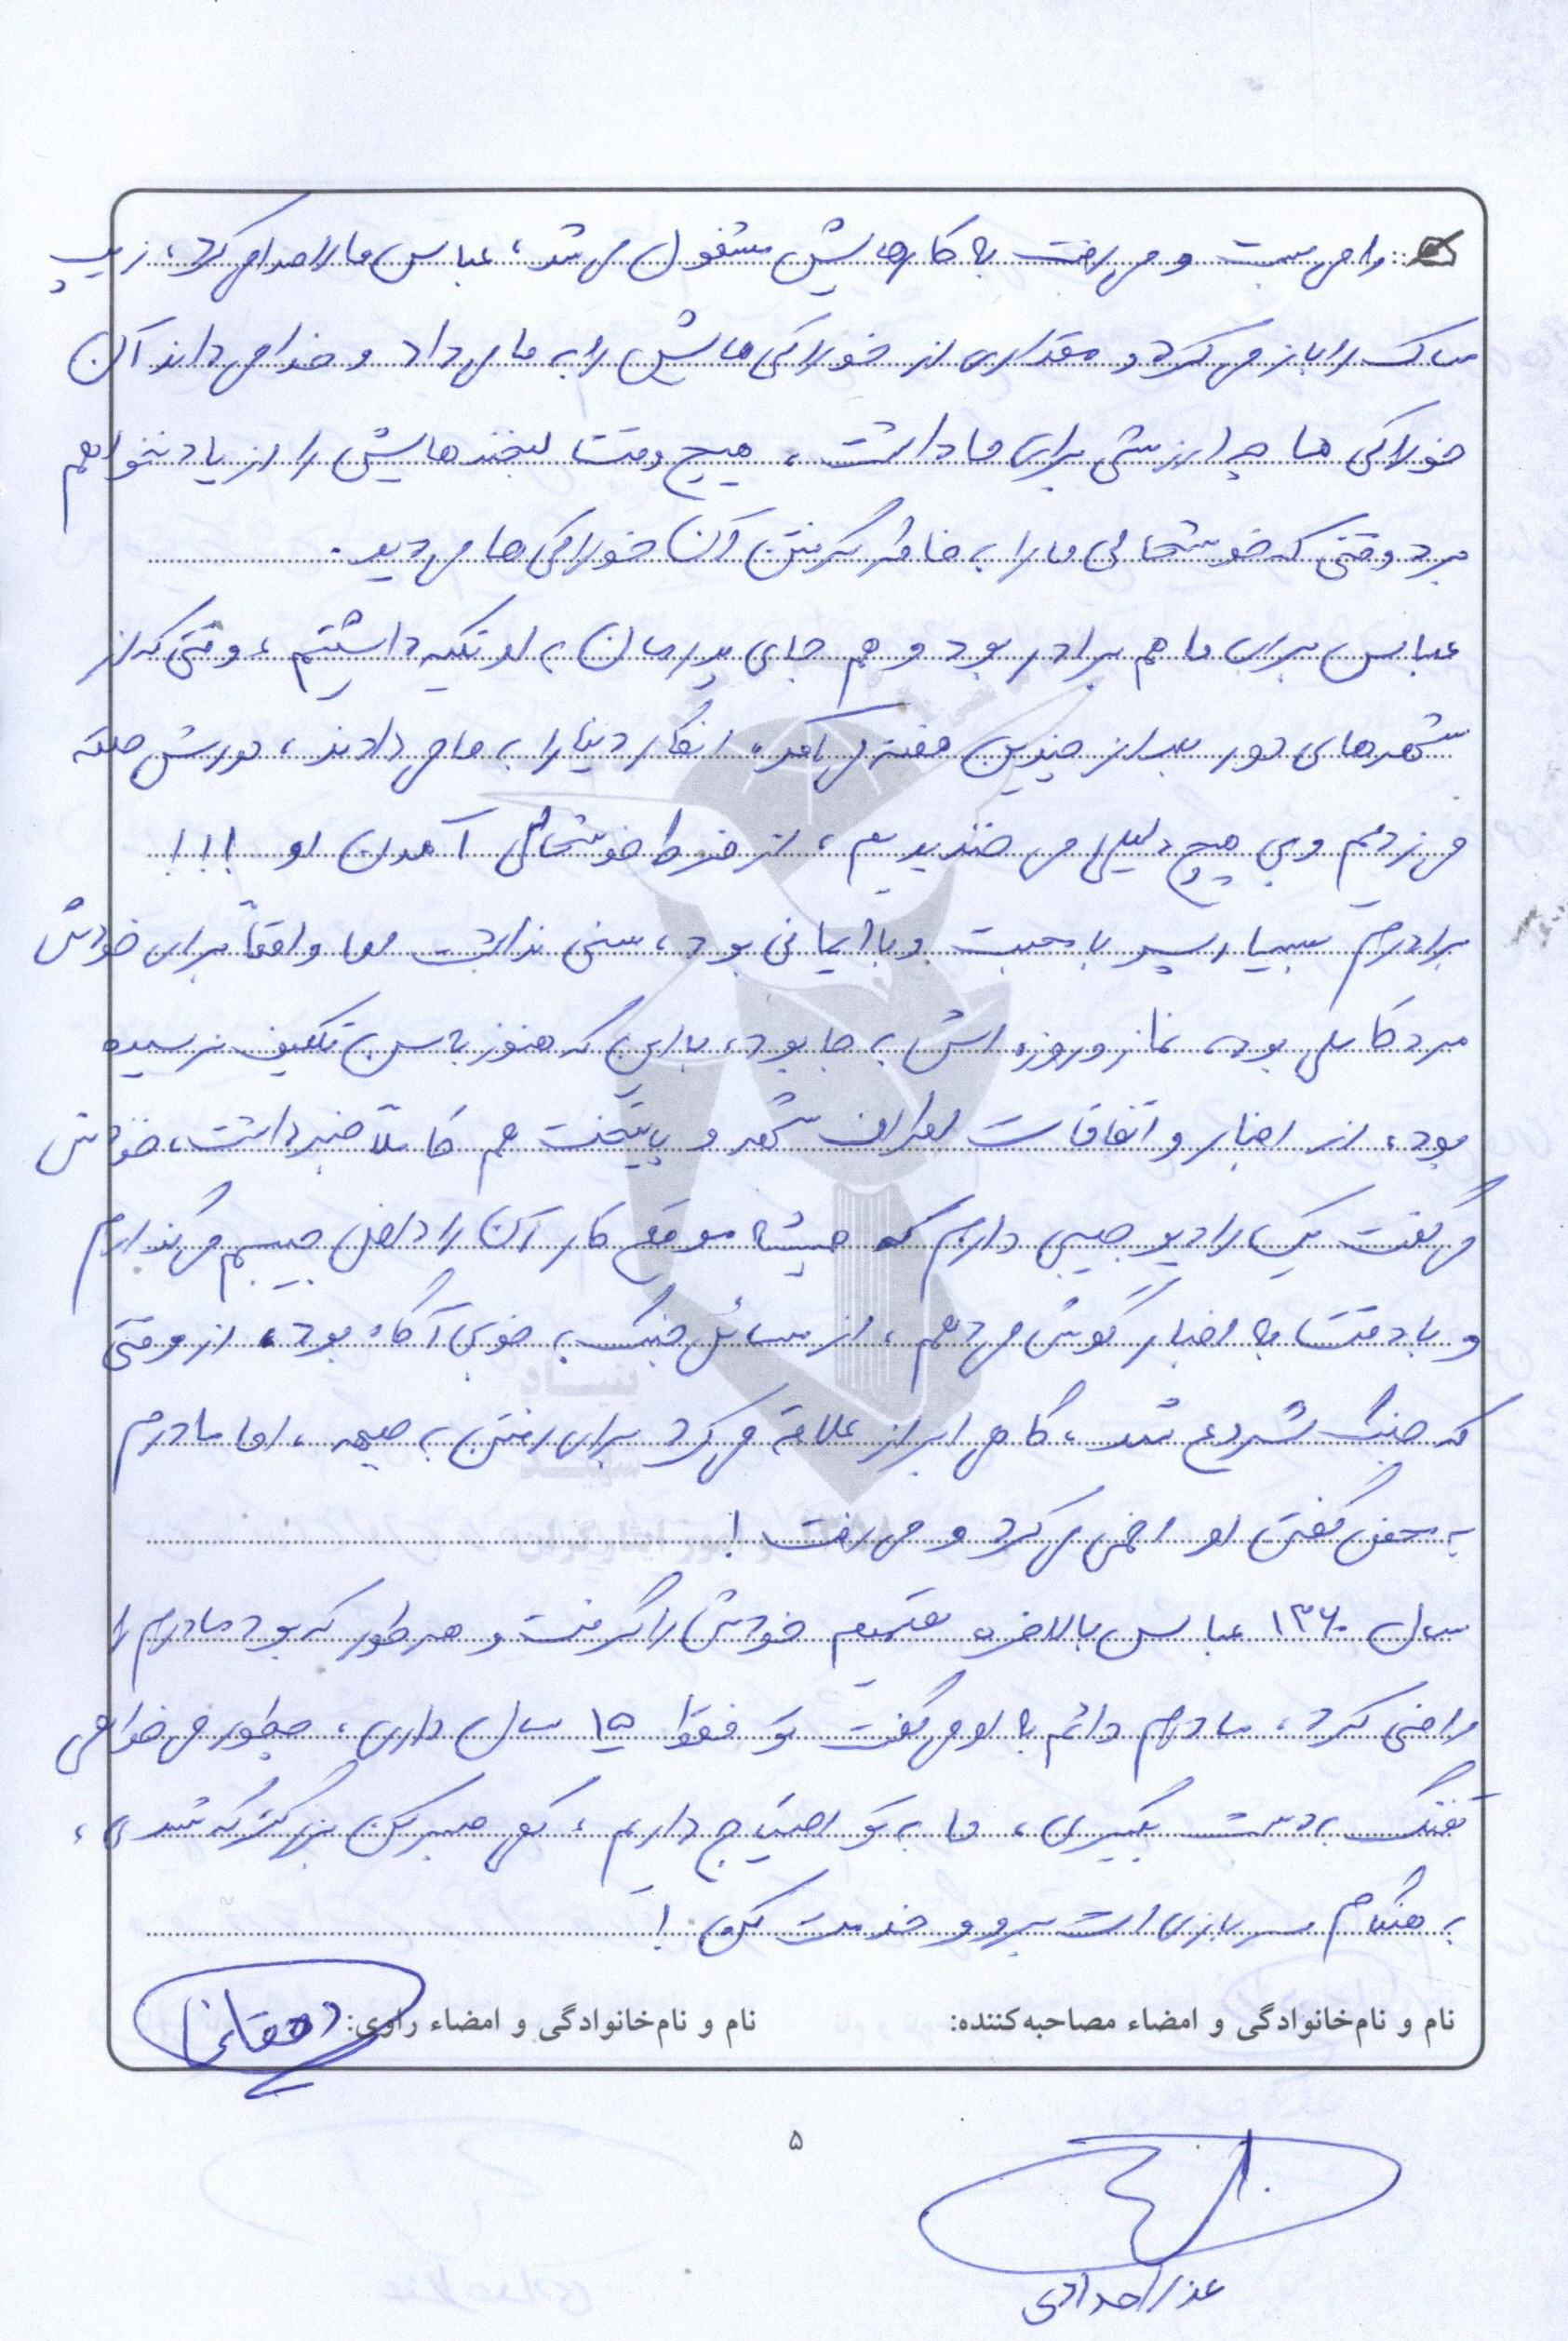 را می بست و می رفت به کارهایش مشغول می شد، عباس ما را صدا می کرد، زیپ
ساک را باز می کرد و مقداری از خوراکی هایش را به ما می داد و خدا می داند آن
خوراکی ها چه ارزشی برای ما داشت، هیچ وقت لبخندهایش را از یاد نخواهم
برد وقتی که خوشحالی ما را به خاطر گرفتن آن خوراکی ها می دید.
عباس برای ما هم برادر بود و هم جای پدرمان به او تکیه داشتیم، وقتی که از
شهرهای دور بعد از چندین هفته می آمد، انگار دنیا را به ما می دادند، دورش حلقه
می زدیم و بی هیچ دلیلی می خندیدیم، از فرط خوشحالی آمدن او !!!
برادرم بسیار پسر با محبت و با ایمانی بود، سنی نداشت اما واقعاً برای خودش
مرد کاملی بود، نماز و روزه اش به جا بود، با این که هنوز به سن تکلیف نرسیده
بود، از اخبار و اتفاقات اطراف شهر و پایتخت هم کاملاً خبر داشت، خودش
می گفت یک رادیو جیبی دارم که همیشه موقع کار آن را داخل جیبم می گذارم
و با دقت به اخبار گوش می دهم، از مسائل جنگ به خوبی آگاه بود، از وقتی
که جنگ شروع شد، گاهی ابراز علاقه می کرد برای رفتن به جبهه، اما مادرم
به محض گفتن او اخمی می کرد و می رفت !
سال ۱۳۶۰ عباس بالاخره تصمیم خودش را گرفت و هر طور که بود مادرم را
راضی کرد، مادرم دائم به او می گفت تو فقط ۱۵ سال داری، چطور می خواهی
تفنگ به دست بگیری، ما به تو احتیاج داریم، کمی صبر کن بزرگتر که شدی،
به هنگام سربازی ات برو و خدمت کن !
نام و نام‌خانوادگی و امضاء مصاحبه‌کننده: نام و نام‌خانوادگی و امضاء راوی: دهقانی
۵
عذرا حدادی